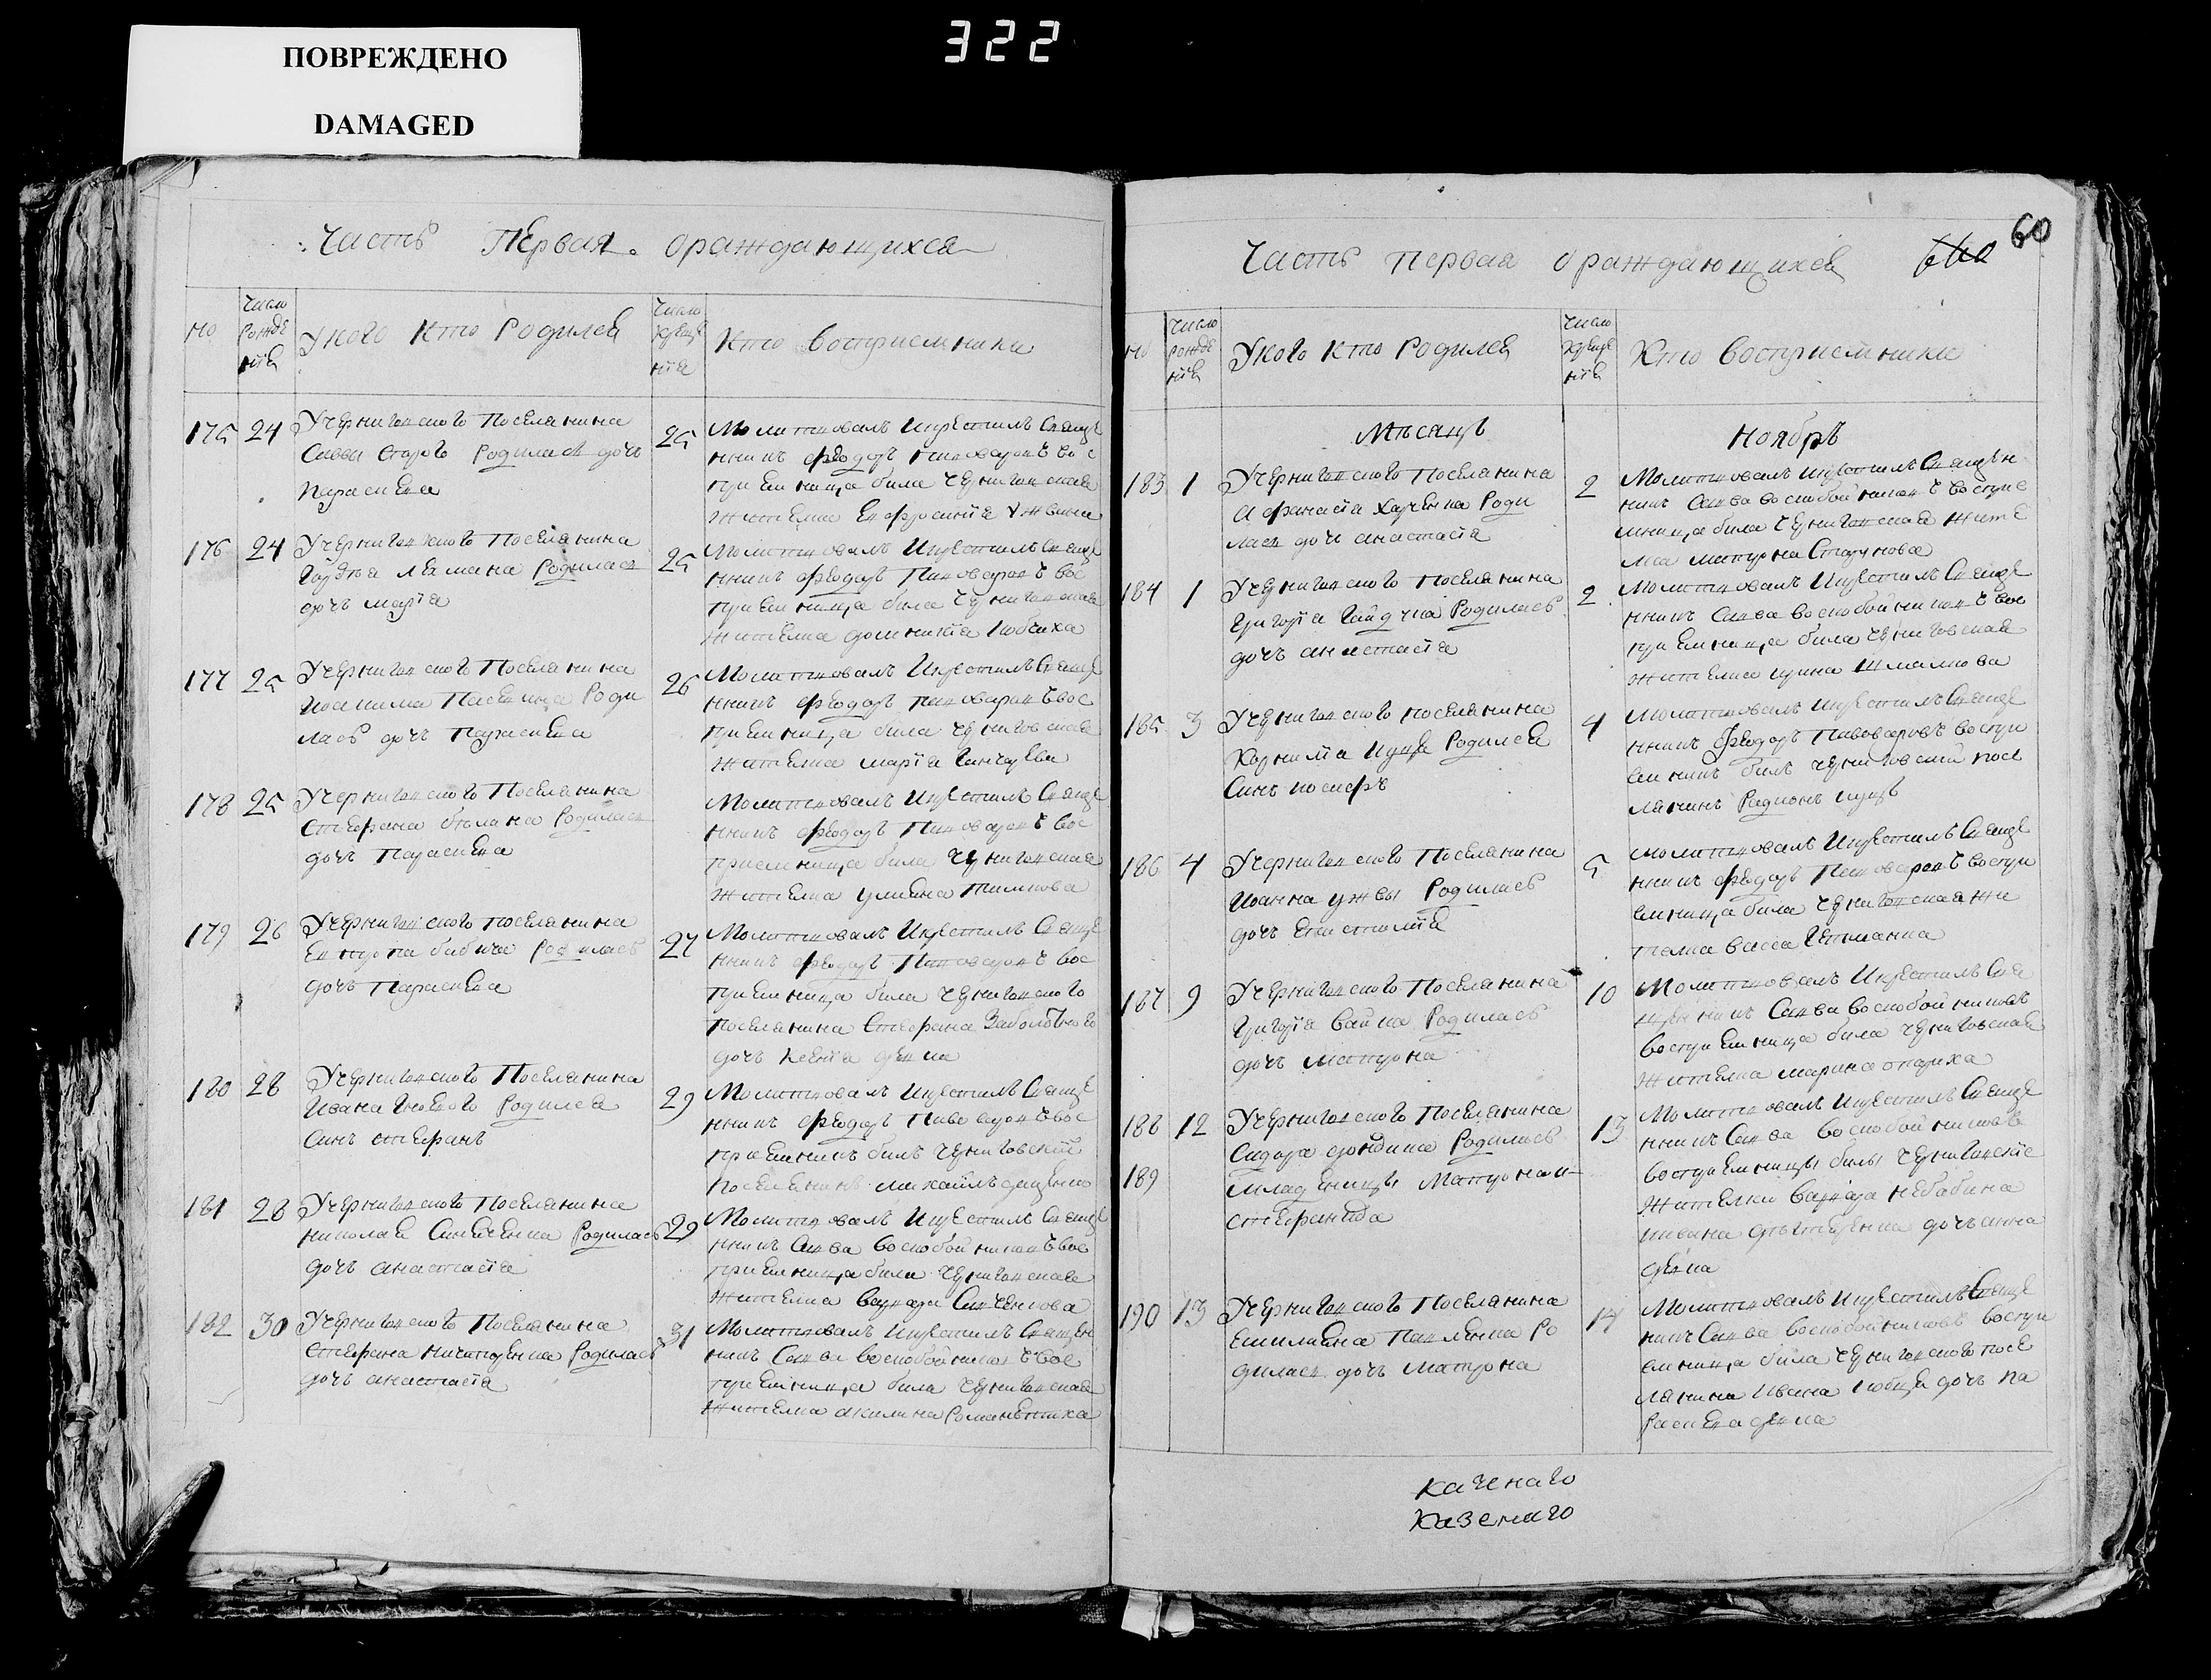 ПОВРЕЖДЕНО
DAMAGED
322
Часть Первая ораждающихся
но
Число
Рожде
нїя
Укого Кто Родился
Число
Креще
нїя
Кто Восприемники
175 24 Учерниговского Поселянина
Саввы Старого Родилася дочь
Параскева
25 Молитвовалъ Икрестилъ Свяще
нникъ Феодоръ Пивоваровъ вос
приемница била Черниговская
Жителка Евфросинїя Ужвина
176 24 Учерниговского Поселянина
Гордѣя Лямана Родилася
дочь марїя
25 Молитвовалъ Икрестилъ Свяще
нникъ Феодоръ Пивоваровъ Вос
приемница била Черниговская
Жителка домникїя
177 25 Учерниговского Поселянина
Роди
лась дочь Параскева
26 Молитвовалъ Икрестилъ Свяще
нникъ Феодоръ Пивоваровъ вос
приемница била Черниговская
Жителка марїя Гончарева
178 25 Учерниговского Поселянина
Стефана бѣлана Родилася
дочь Параскева
Молитвовалъ Икрестилъ Свяще
нникъ Феодоръ Пивоваровъ Вос
приемница била Черниговская
Жителка улияна
179 26 Учерниговского Поселянина
Евтропа бабича Родилась
дочь Параскева
27 Молитвовалъ Икрестилъ Свяще
нникъ Феодоръ Пивоваровъ Вос
приемница била Черниговского
Поселянина Стефана Заболотного
дочь Ксенїя девка
180 28 Учерниговского Поселянина
Ивана Гноевого Родился
Синъ стефанъ
29 Молитвовалъ Икрестилъ Свяще
нникъ Феодоръ Пивоваровъ вос
приемникъ билъ Черниговскїй
Поселянинъ михаилъ
181 28 Учерниговского Поселянина
николая Синяченка Родилась
дочь анастасїя
29 Молитвовалъ Икрестилъ Свяще
нникъ Савва Воскобойниковъ вос
приемница била Черниговская
Жителка варвара
182 30 Учерниговского Поселянина
Стефана Ничипоренка Родилась
дочь анастасїя
31 Молитвовалъ Икрестилъ Священ
никъ Савва воскобойниковъ вос
приемница била Черниговская
Жителка акилина Романьтиха
60
Часть первая ораждающихся
но
Число
рожде
нїя
Укого Кто Родился
Число
Креще
нїя
Кто Восприемники
Мѣсяцъ Ноябръ
183 1 Учерниговского Поселянина
Афанасїя Харченка Роди
лася дочь анастасїя
2 Молитвовалъ Икрестилъ Священ
никъ Савва воскобойниковъ воспрїе
мница била Черниговская жите
лка матрона Стагунова
184 1 Учерниговского Поселянина
Григорїя Гайдука Родилась
дочь анастасїя
2 Молитвовалъ Икрестилъ Свяще
нникъ Савва воскобойниковъ вос
приемница била Черниговская
жителка ирина Шмалкова
185 3 Учерниговского поселянина
Корнилїя Куця Родился
Синъ иосифъ
4 Молитвовалъ Икрестилъ Свяще
нникъ Феодоръ Пивоваровъ воспри
емникъ билъ Черниговский посе
лянинъ Радионъ куцъ
186 4 Учерниговского Поселянина
Иоанна ужвы Родилась
дочь
5 Молитвовалъ Икрестилъ Свяще
нникъ Феодоръ Пивоваровъ воспри
емница била Черниговская жи
телка васса Гетманка
187 9 Учерниговского Поселянина
Григорїя вайка Родилась
дочь Матрона
10 Молитвовалъ Икрестилъ Свя
щенникъ Савва воскобойниковъ
восприемница била Черниговская
Жителка марина опариха
188 12 Учерниговского Поселянина
Сидора Родилась
189 младеницы Матрона и
стефанида
13 Молитвовалъ Икрестилъ Свяще
нникъ Савва воскобойниковъ
восприемницы билы Черниговскїе
Жителки варвара небабина
дочь анна
девка
190 13 Учерниговского Поселянина
Емилияна Павленка Ро
дилася дочь Матрона
14 Молитвовалъ Икрестилъ Свяще
никъ Савва воскобойниковъ воспри
емница била Черниговского посе
лянина Ивана дочь Па
раскева девка
каченаго
Каземаго